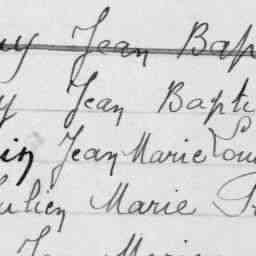 y Jean Bap
y Jean Bapti
in Jean Marie Loui
Julien Marie
Jean Marie